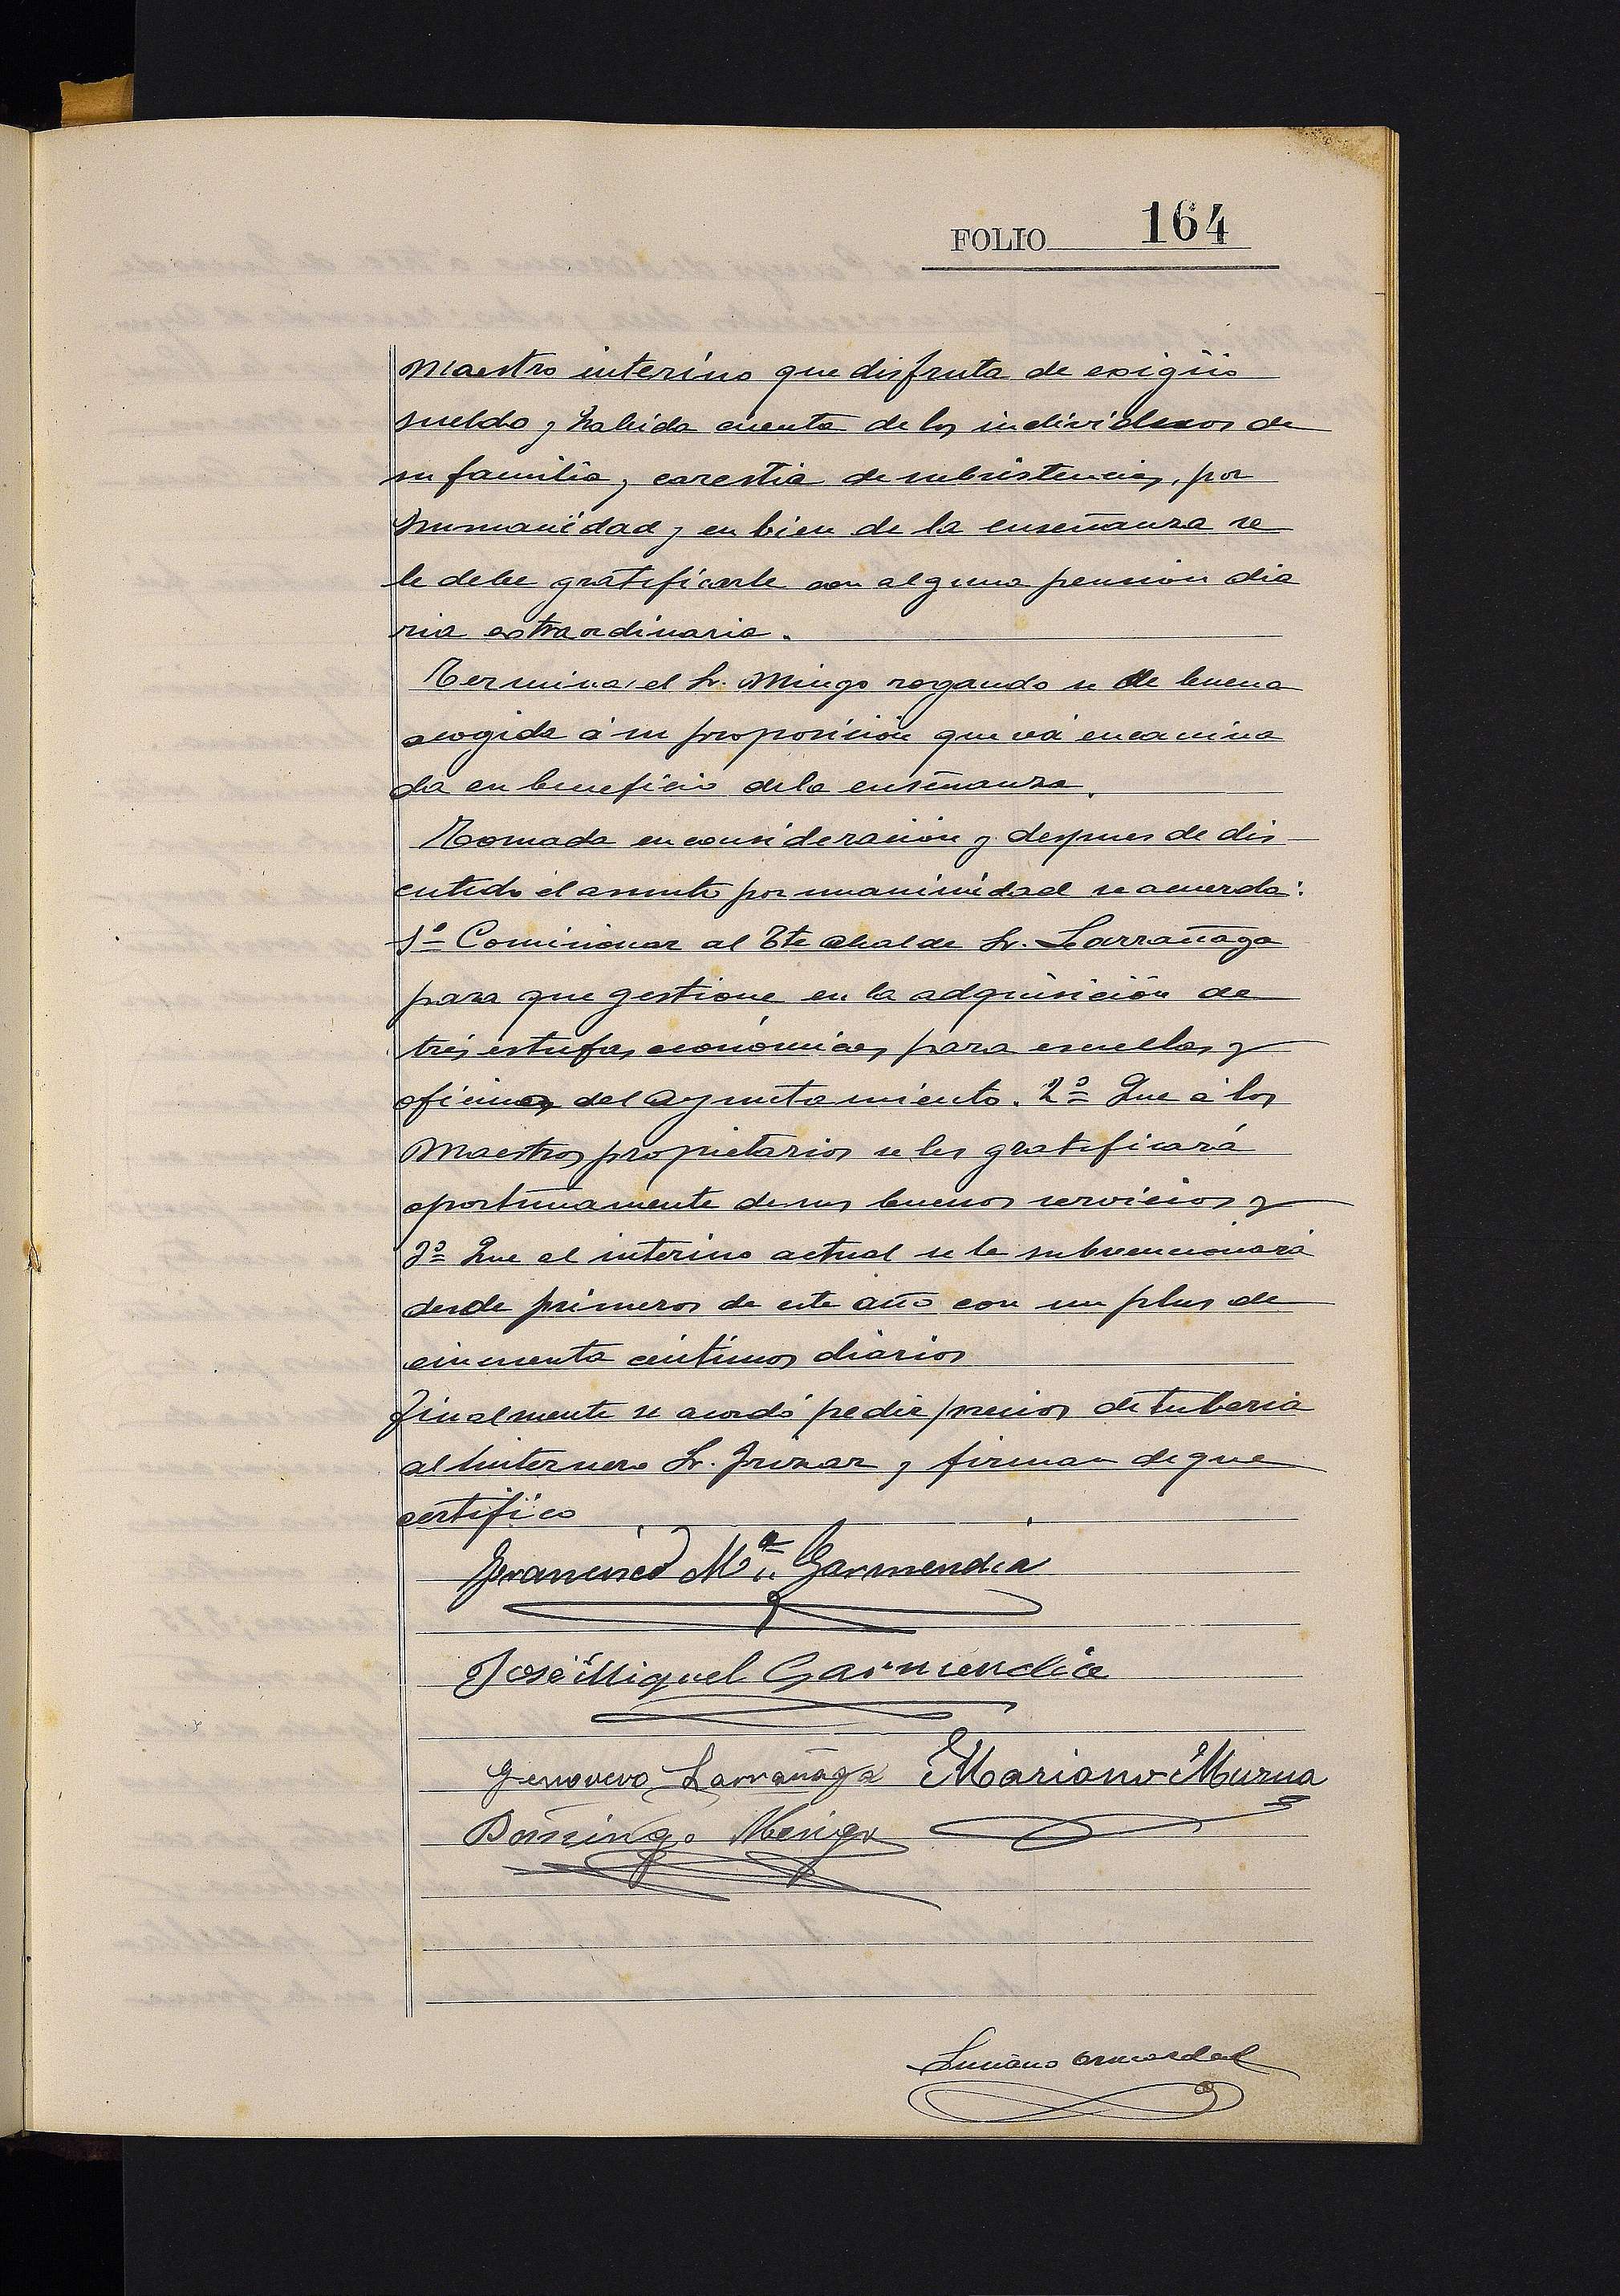 FOLIO 164
Maestro interino que disfruta de exigüo
sueldo y habida cuenta de los individuos de
su familia y carestia de subsistencias, por
humanidad y en bien de la enseñanza se
le debe gratificarle con alguna pension dia
ria extraordinaria.
Termina el Sr. Mingo rogando se dé buena
acogida á su proposición que vá encamina
da en beneficio de la enseñanza.
Tomada en consideración y despues de dis
cutido el asunto por unanimidad se acuerda:
1º Comisionar al Tte Alcalde Sr. Larrañaga
para que gestione en la adquisición de
tres estufas económicas para escuelas y
oficinas del Ayuntamiento. 2º Que á los
Maestros propietarios se les gratificará
oportunamente de sus buenos servicios y
3º Que al interino actual se le subvencionará
desde primeros de este año con un plus de
cincuenta céntimos diarios
Finalmente se acordó pedir precios de tuberia
al linternero Sr. Irizar y firman de que
certifico
Francisco Mª Garmendia
José Miguel Garmendia
Genovevo Larrañaga Mariano Murua
Domingo Mingo
Luciano